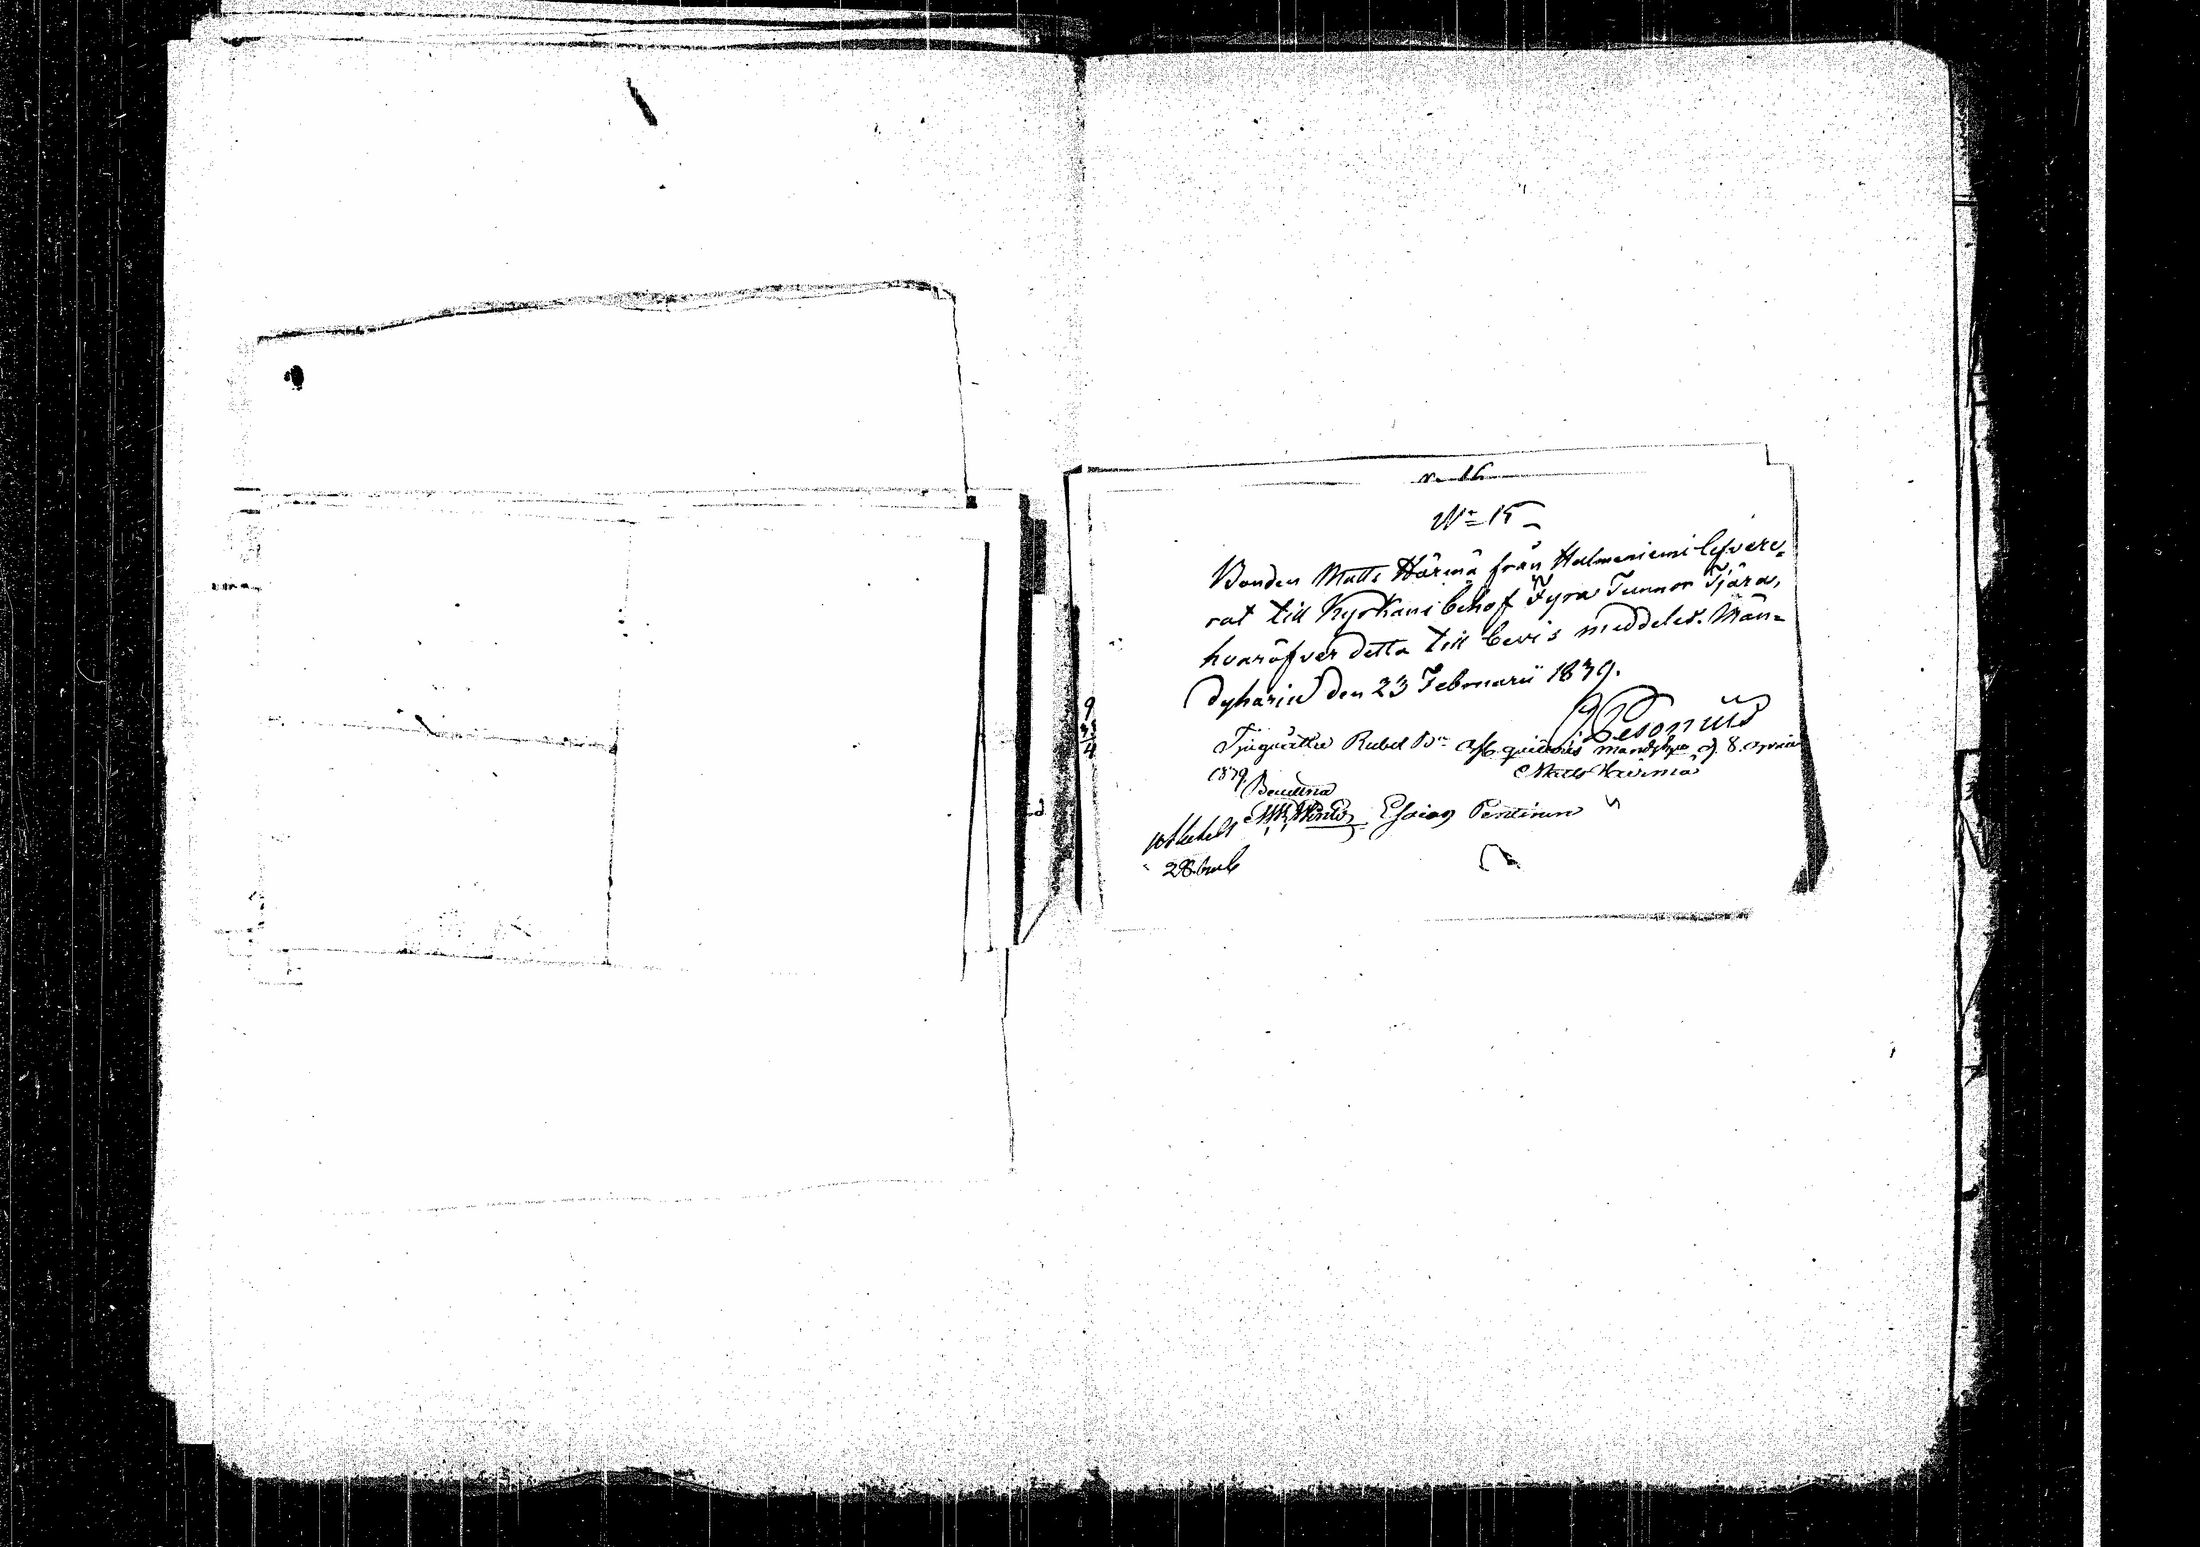 N:o 15
Bonden Matts Härmä från Halmeniemi lefvere,
rat till Kyrkans behof Fyra Tunnor Tjära,
hvaröfver detta till bevis meddelas. Män=
dyharju den 23 Februarii 1839.
Tjuguåtta Rubel B:co qvitteras Mändyharju d. 8. April
1839. Matts Härmä
Bevittna
Esaias Penttinen
28 Rub